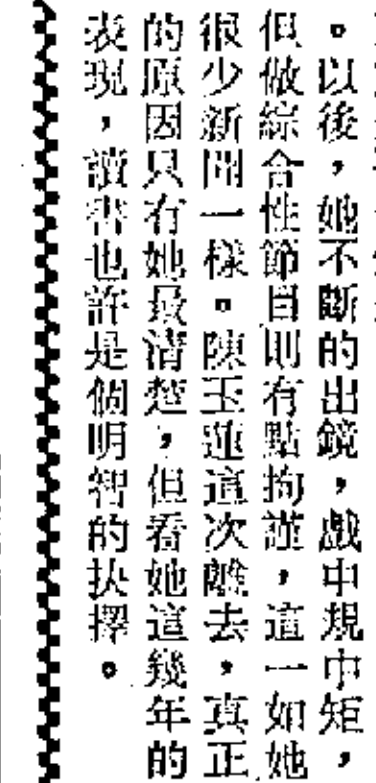 。以後，她不斷的出鏡，戲中規中矩，
但做綜合性節目則有點拘謹，這一如她
很少新聞一樣。陳玉蓮這次離去，真正
的原因只有她最清楚，但看她這幾年的
表現，讀書也許是個明智的抉擇。